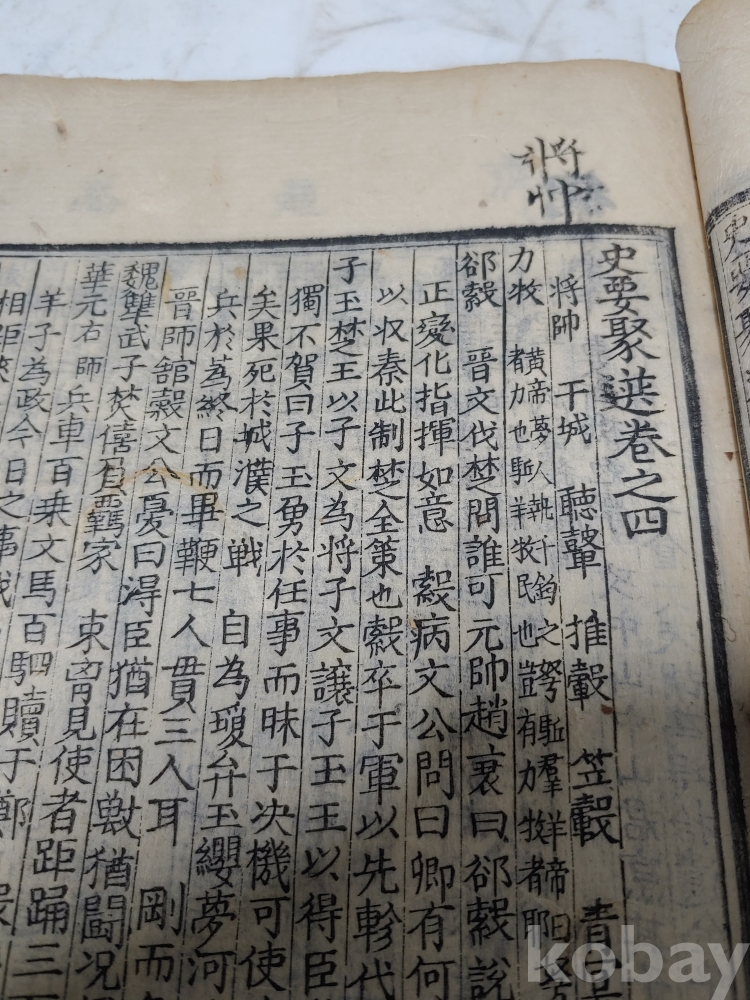 史要聚選卷之四
將帥 干城 聽鼙 推轂 笠轂 青
力牧 黃帝夢人執千鈞之弩駈羣羊帝曰
者力也駈羊牧民也豈有力牧者耶
郤縠 晉文伐楚問誰可元帥趙衰曰郤縠說
正變化指揮如意 縠病文公問曰卿有何
以収秦此制楚全策也縠卒于軍以先軫代
子玉楚王以子文為将子文讓子玉王以得臣
獨不賀曰子玉勇於任事而昧于决機可使
矣果死於城濮之戦 自為瓊弁玉纓夢河
兵於蒍終日而畢鞭七人貫三人耳 剛而
晉師舘穀文公憂曰淂臣猶在困獸猶鬪况
魏犨武子焚僖負羈家 束胷見使者距踊三
華元右師兵車百乗文馬百駟贖于鄭
羊子為政今日之事
相距
kobay